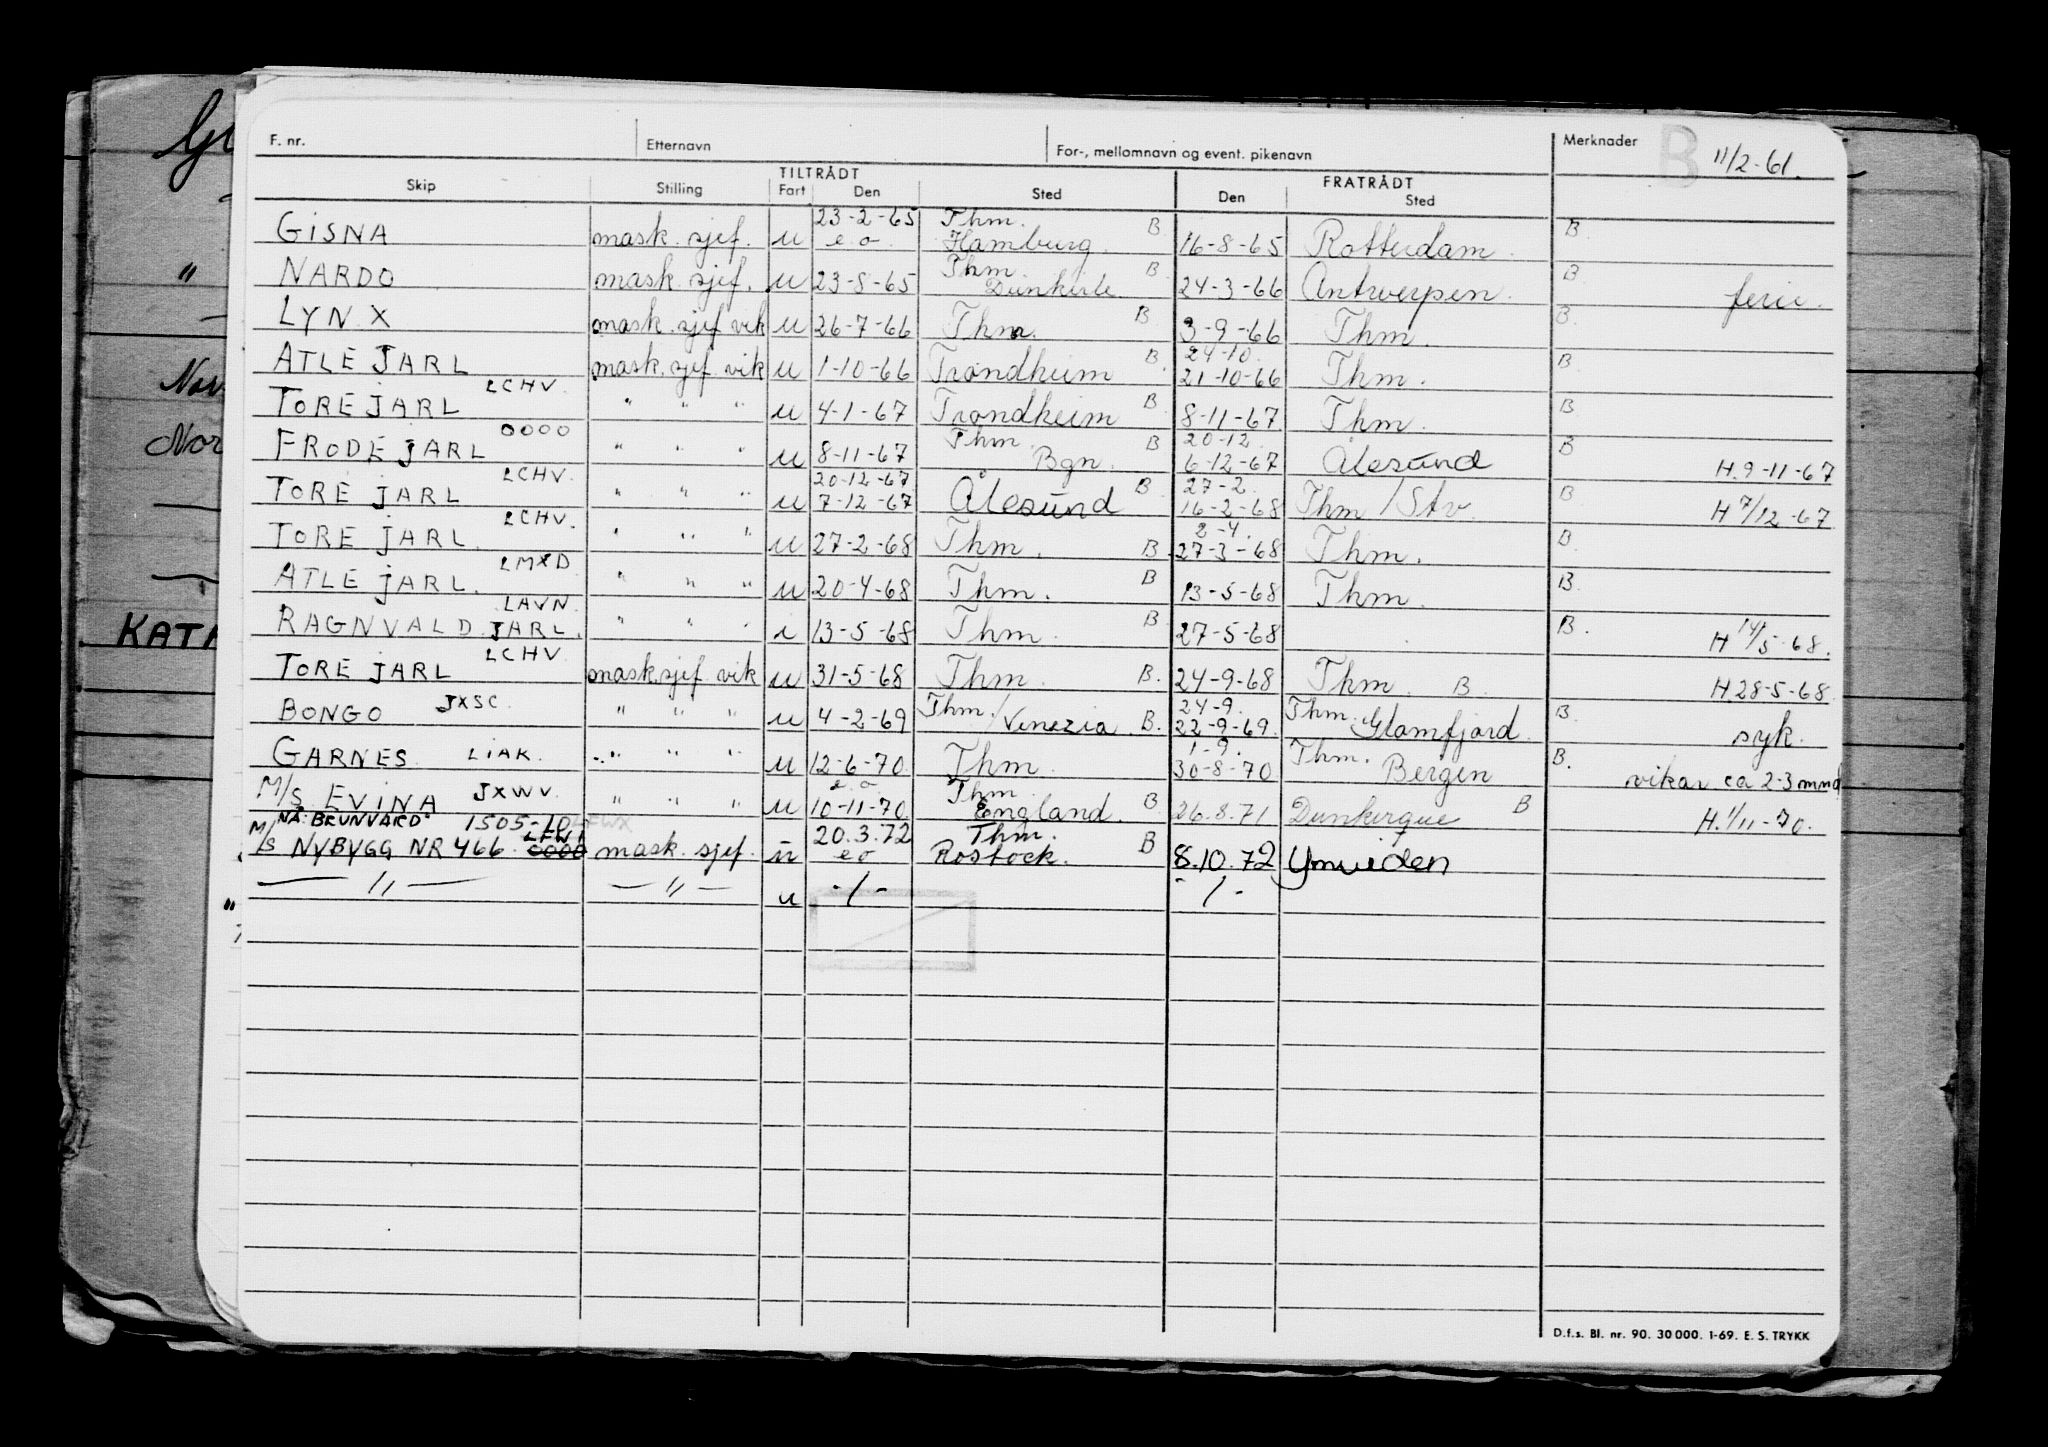 F. nr. Etternavn For-, mellomnavn og event. pikenavn Merknader B 11/2-61.
TILTRÅDT FRATRÅDT
Skip Stilling Fart Den Sted Den Sted
GISNA mask. sjef. u 23-2-65 e.o. Thm. Hamburg. B 16-8-65 Rotterdam. B
NARDO mask. sjef. u 23-8-65 Thm. Dunkirk. B 24-3-66 Antwerpen. B ferie.
LYNX mask. sjef vik u 26-7-66 Thm. B 3-9-66 Thm. B.
ATLE JARL mask. sjef vik u 1-10-66 Trondheim B 24-10. 21-10-66 Thm. B
TORE JARL LCHV. " " " u 4-1-67 Trondheim B 8-11-67 Thm. B
FRODE JARL 0000 " " " u 8-11-67 Thm. Bgn. B 20-12. 6-12-67 Ålesund B H.9-11-67
TORE JARL LCHV. " " " u 20-12-67 7-12-67 Ålesund B 27-2. 16-2-68 Thm / Stv. B H 7/12-67
TORE JARL. LCHV. " " " u 27-2-68 Thm. B 2-4. 27-3-68 Thm. B.
ATLE JARL. LMXD " " " u 20-4-68 Thm. B 13-5-68 Thm. B.
RAGNVALD JARL. LAVN. " " " i 13-5-68 Thm. B 27-5-68 B. H 14/5-68.
TORE JARL LCHV. mask sjef vik u 31-5-68 Thm. B. 24-9-68 Thm. B H.28-5-68.
BONGO JXSC. " " " u 4-2-69 Thm. / Venezia. B. 24-9. 22-9-69. Thm. Glomfjord. B. syk.
GARNES LIAK. " " " u 12-6-70. Thm. 1-9. 30-8-70 Thm. Bergen B. vikar ca 2-3 mnd
M/S EVINA JXWV. " " " u e.o. 10-11-70. Thm. England. B 26.8.71 Dunkerque B H.1/11-70.
NÅ: "BRUNVARD" 1505-10 LFWX
M/S NYBYGG NR 466. 0000 mask. sjef. u 20.3.72 e o Thm. Rostock. B 8.10.72 Ymuiden
— " — — " — u -/- -/-
KATA
D.f.s. Bl. nr. 90. 30 000. 1-69. E. S. TRYKK